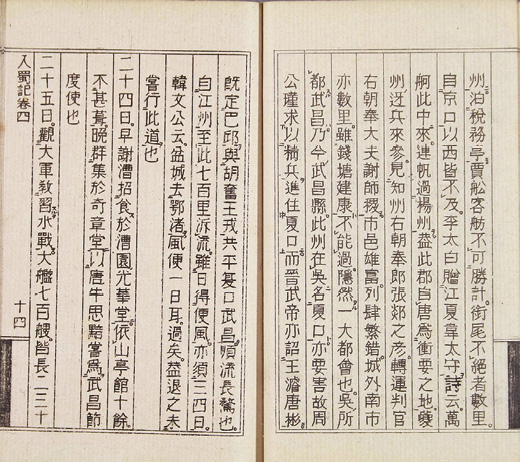 州泊稅務亭賈舩客舫不可勝計銜尾不絕者數里
自京口以西皆不及李太白贈江夏韋太守詩云萬
舸此中來連帆過揚州葢此郡自唐爲衝要之地夔
州迓兵來參見知州右朝奉郎張郯之彥轉運判官
右朝奉大夫謝師稷市邑雄富列肆繁錯城外南市
亦數里雖錢塘建康不能過隱然一大都會也吳所
都武昌乃今武昌縣此州在吳名夏口亦要害故周
公瑾求以精兵進住夏口而晉武帝亦詔王濬唐彬
旣定巴邱與胡奮王戎共平夏口武昌順流長騖也
自江州至此七百里泝流雖日得便風亦須三四日
韓文公云盆城去鄂渚風便一日耳過矣葢退之未
嘗行此道也
二十四日早謝漕招食於漕園光華堂依山亭館十餘
不甚葺晚群集於奇章堂以唐牛思黯嘗爲武昌節
度使也
二十五日觀大軍敎習水戰大艦七百艘皆長二三十
入蜀記卷四 十四